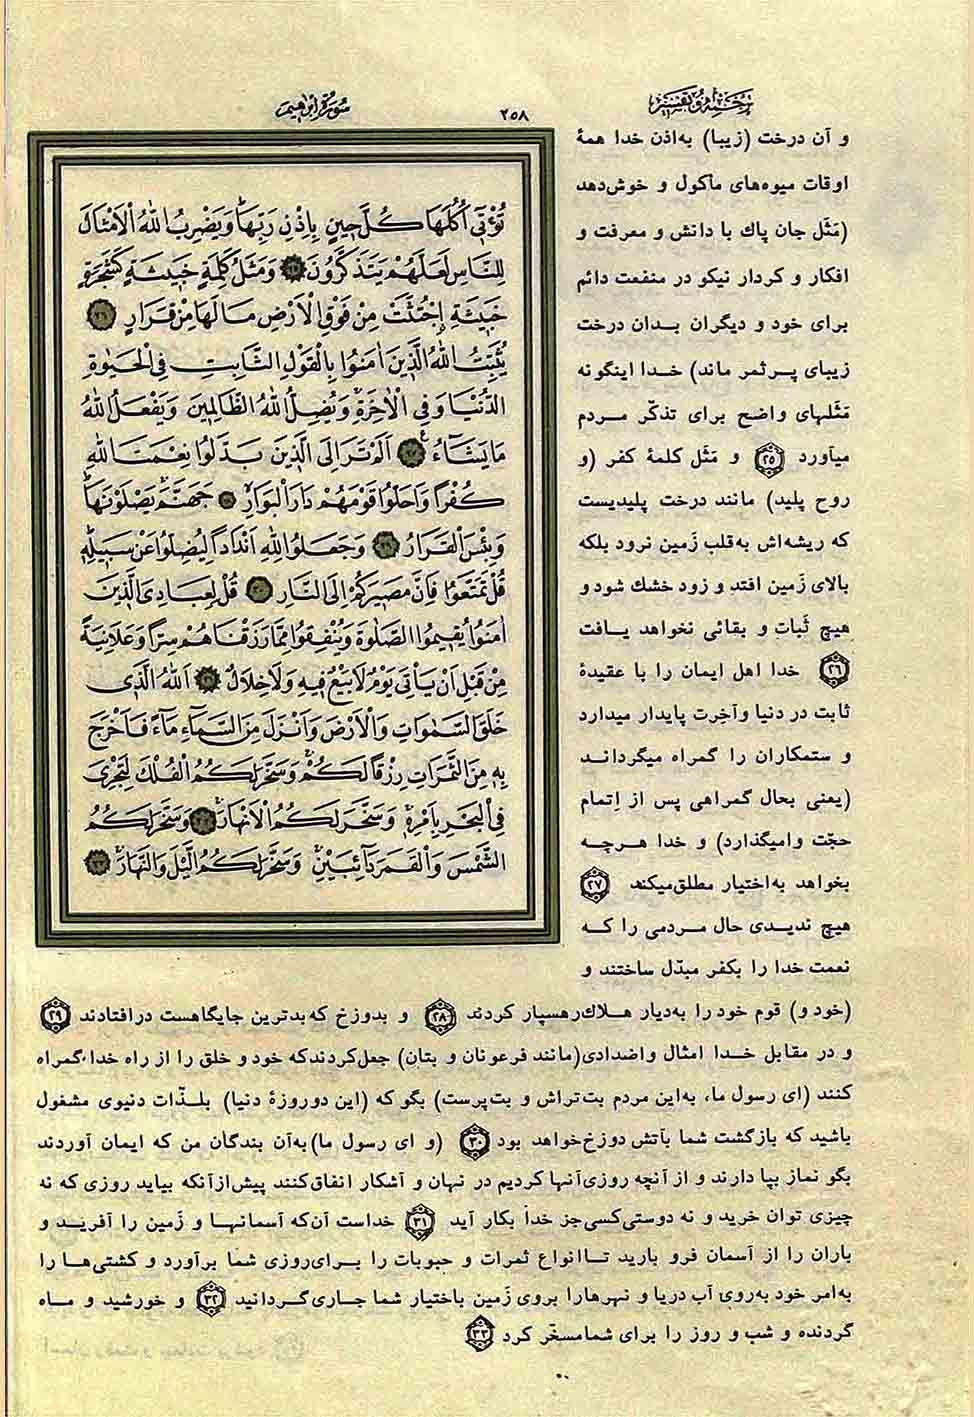 ترجمه و تفسیر
۲۵۸
سورة ابراهیم
تُؤْتٓى اُكُلَهَا كُلَّ حٖينٍ بِاِذْنِ رَبِّهَا وَيَضْرِبُ اللهُ الْاَمْثَالَ
لِلنَّاسِ لَعَلَّهُمْ يَتَذَكَّرُونَ ۲۵ وَمَثَلُ كَلِمَةٍ خَبٖيثَةٍ كَشَجَرَةٍ
خَبٖيثَةٍ اِجْتُثَّتْ مِنْ فَوْقِ الْاَرْضِ مَا لَهَا مِنْ قَرَارٍ ۲۶
يُثَبِّتُ اللهُ الَّذٖينَ اٰمَنُوا بِالْقَوْلِ الثَّابِتِ فِى الْحَيٰوةِ
الدُّنْيَا وَفِى الْاٰخِرَةِ وَيُضِلُّ اللهُ الظَّالِمٖينَ وَيَفْعَلُ اللهُ
مَا يَشَٓاءُ ۲۷ اَلَمْ تَرَ اِلَى الَّذٖينَ بَدَّلُوا نِعْمَتَ اللهِ
كُفْرًا وَاَحَلُّوا قَوْمَهُمْ دَارَ الْبَوَارِ ۲۸ جَهَنَّمَ يَصْلَوْنَهَا
وَبِئْسَ الْقَرَارُ ۲۹ وَجَعَلُوا لِلّٰهِ اَنْدَادًا لِيُضِلُّوا عَنْ سَبٖيلِهٖ
قُلْ تَمَتَّعُوا فَاِنَّ مَصٖيرَكُمْ اِلَى النَّارِ ۳۰ قُلْ لِعِبَادِىَ الَّذٖينَ
اٰمَنُوا يُقٖيمُوا الصَّلٰوةَ وَيُنْفِقُوا مِمَّا رَزَقْنَاهُمْ سِرًّا وَعَلَانِيَةً
مِنْ قَبْلِ اَنْ يَاْتِىَ يَوْمٌ لَا بَيْعٌ فٖيهِ وَلَا خِلَالٌ ۳۱ اَللهُ الَّذٖى
خَلَقَ السَّمٰوَاتِ وَالْاَرْضَ وَاَنْزَلَ مِنَ السَّمَٓاءِ مَٓاءً فَاَخْرَجَ
بِهٖ مِنَ الثَّمَرَاتِ رِزْقًا لَكُمْ وَسَخَّرَ لَكُمُ الْفُلْكَ لِتَجْرِىَ
فِى الْبَحْرِ بِاَمْرِهٖ وَسَخَّرَ لَكُمُ الْاَنْهَارَ ۳۲ وَسَخَّرَ لَكُمُ
الشَّمْسَ وَالْقَمَرَ دَٓائِبَيْنِ وَسَخَّرَ لَكُمُ الَّيْلَ وَالنَّهَارَ ۳۳
و آن درخت (زیبا) به‌اذن خدا همهٔ
اوقات میوه‌های مأکول و خوش دهد
(مَثَل جان پاك با دانش و معرفت و
افکار و کردار نیکو در منفعت دائم
برای خود و دیگران بدان درخت
زیبای پرثمر ماند) خدا اینگونه
مَثَلهای واضح برای تذکّر مردم
میآورد ۲۵ و مَثَل کلمهٔ کفر (و
روح پلید) مانند درخت پلیدیست
که ریشه‌اش به‌قلب زَمین نرود بلکه
بالای زَمین افتد و زود خشك شود و
هیچ ثَبات و بقائی نخواهد یافت
۲۶ خدا اهل ایمان را با عقیدهٔ
ثابت در دنیا و آخِرت پایدار میدارد
و ستمکاران را گمراه میگرداند
(یعنی بحال گمراهی پس از اِتمام
حجّت وامیگذارد) و خدا هرچه
بخواهد به‌اختیار مطلق میکند ۲۷
هیچ ندیدی حال مردمی را که
نعمت خدا را بکفر مبدّل ساختند و
(خود و) قوم خود را به‌دیار هلاك رهسپار کردند ۲۸ و بدوزخ که بدترین جایگاهست درافتادند ۲۹
و در مقابل خدا امثال و اضدادی (مانند فرعونان و بتان) جعل کردند که خود و خلق را از راه خدا گمراه
کنند (ای رسول ما، به‌این مردم بت‌تراش و بت‌پرست) بگو که (این دو روزهٔ دنیا) بلذّات دنیوی مشغول
باشید که بازگشت شما بآتش دوزخ خواهد بود ۳۰ (و ای رسول ما) به‌آن بندگان من که ایمان آوردند
بگو نماز بپا دارند و از آنچه روزی آنها کردیم در نهان و آشکار انفاق کنند پیش از آنکه بیاید روزی که نه
چیزی توان خرید و نه دوستی کسی جز خدا بکار آید ۳۱ خداست آن که آسمانها و زَمین را آفرید و
باران را از آسمان فرو بارید تا انواع ثمرات و حبوبات را برای روزی شما برآورد و کشتی‌ها را
به‌امر خود به‌روی آب دریا و نهرها را بروی زَمین باختیار شما جاری گردانید ۳۲ و خورشید و ماه
گردنده و شب و روز را برای شما مسخّر کرد ۳۳